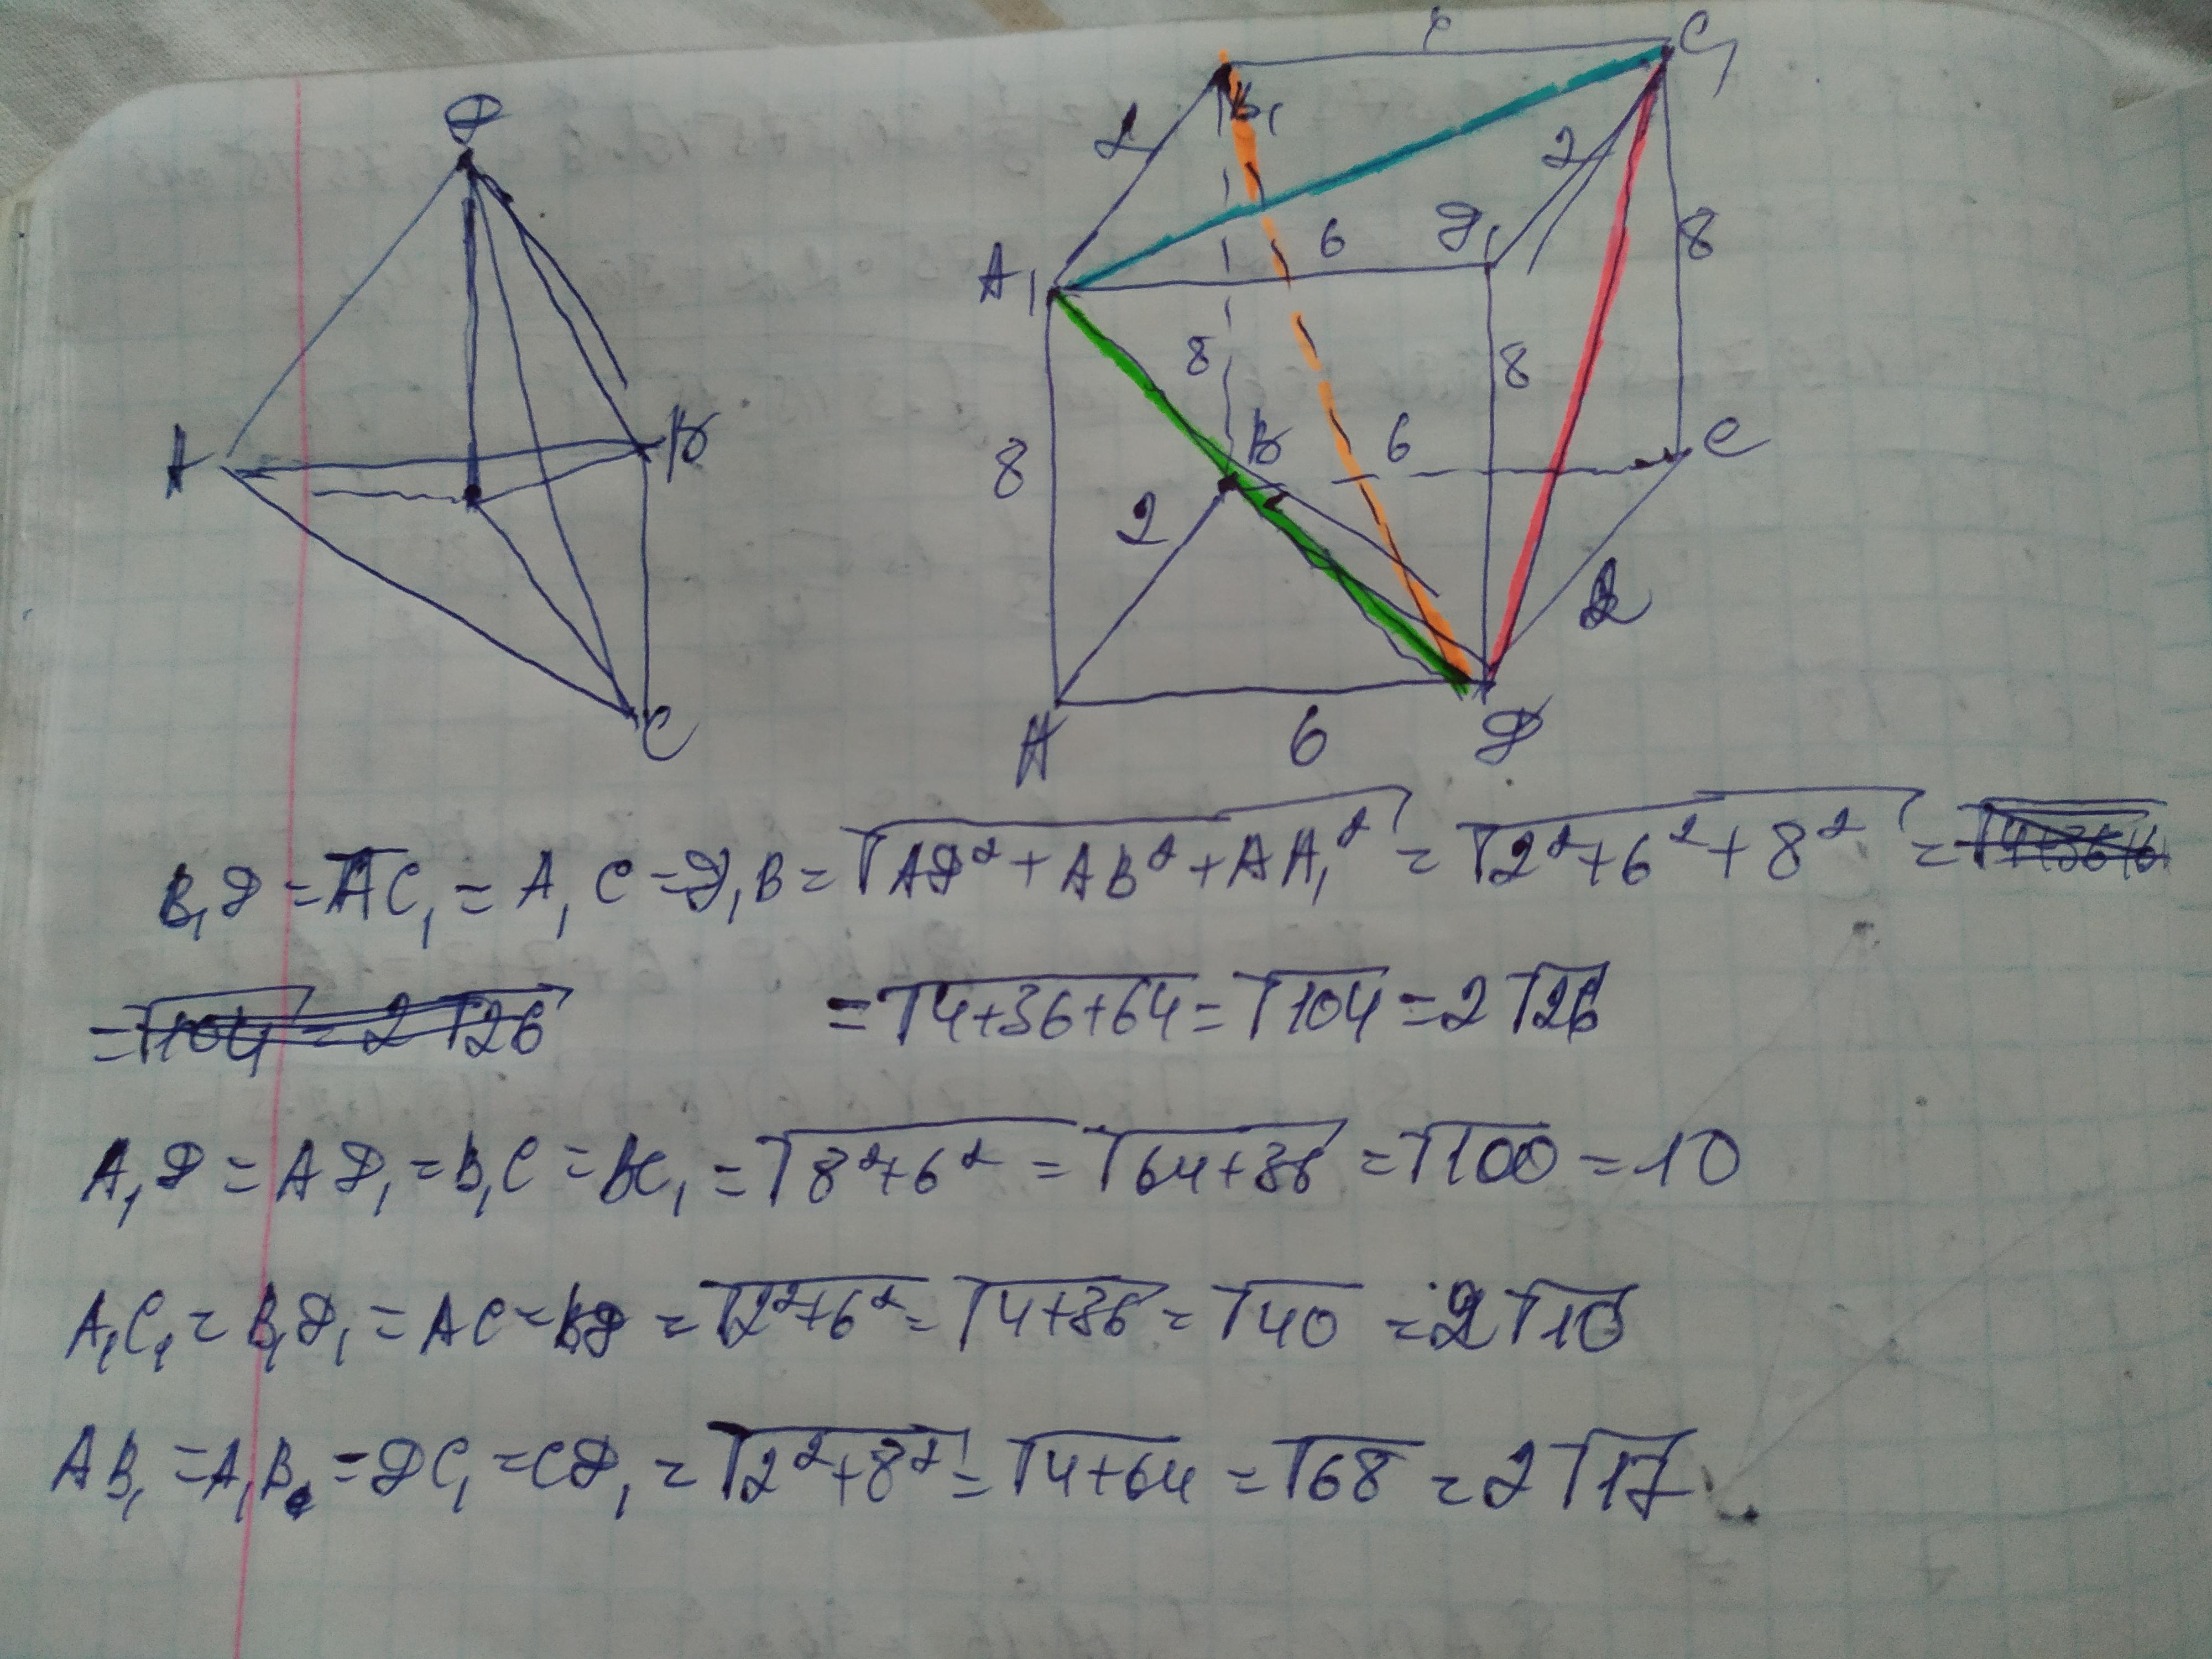 D
A
B
C
B₁
C₁
2
2
A₁
6
D₁
8
8
8
B
6
C
8
2
2
A
6
D
B₁D = AC₁ = A₁C = D₁B = √AD² + AB² + AA₁² = √2² + 6² + 8² =
= √104 = 2√26 = √4+36+64 = √104 = 2√26
A₁D = AD₁ = B₁C = BC₁ = √8²+6² = √64+36 = √100 = 10
A₁C₁ = B₁D₁ = AC = BD = √2²+6² = √4+36 = √40 = 2√10
AB₁ = A₁B = DC₁ = CD₁ = √2²+8² = √4+64 = √68 = 2√17